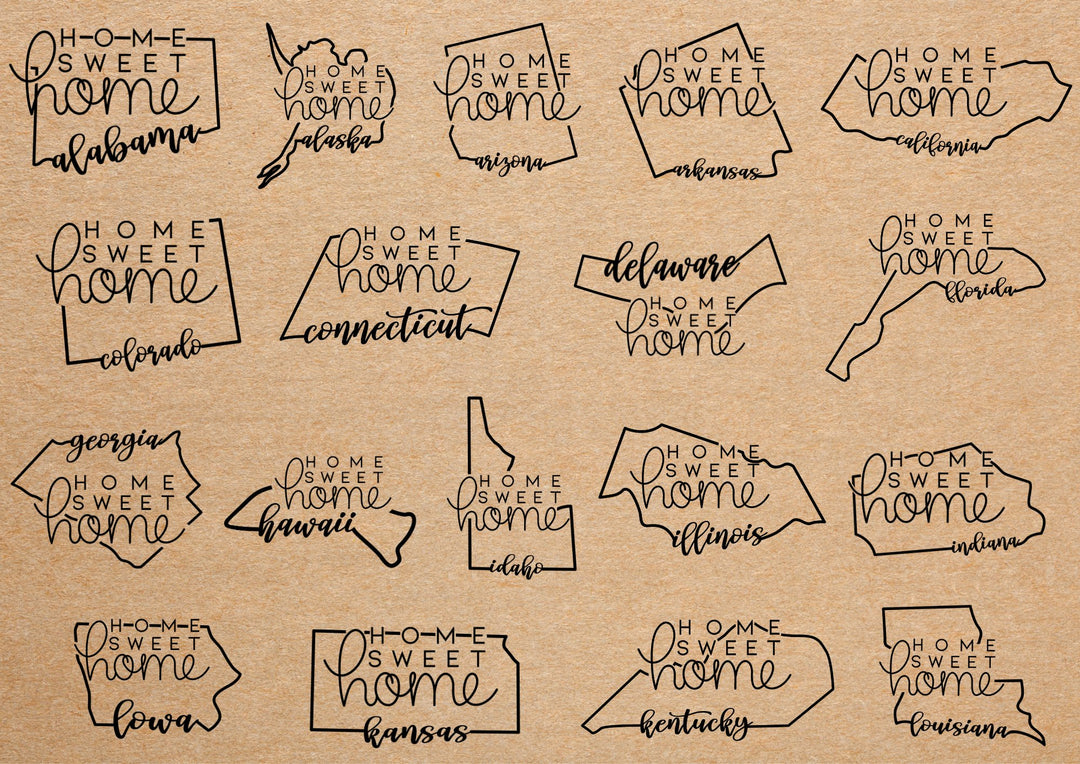 HOME
SWEET
home
alabama
HOME
SWEET
home
alaska
HOME
SWEET
home
arizona
HOME
SWEET
home
arkansas
HOME
SWEET
home
california
HOME
SWEET
home
colorado
HOME
SWEET
home
connecticut
delaware
HOME
SWEET
home
HOME
SWEET
home
florida
georgia
HOME
SWEET
home
HOME
SWEET
home
hawaii
HOME
SWEET
home
idaho
HOME
SWEET
home
illinois
HOME
SWEET
home
indiana
HOME
SWEET
home
Iowa
HOME
SWEET
home
kansas
HOME
SWEET
home
kentucky
HOME
SWEET
home
louisiana